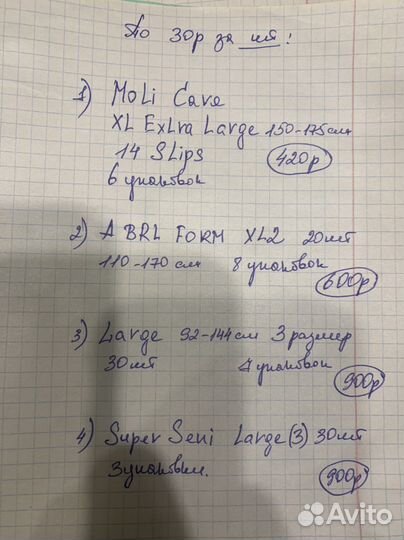 По 30р за шт!
1) Moli Care
XL Extra Large 150-175см
14 Slips 420р
6 упаковок
2) ABRL FORM XL2 20шт
110-170 см 8 упаковок
600р
3) Large 92-144см 3 размер
30шт 4 упаковок
900р
4) Super Seni Large (3) 30шт
3 упаковки. 900р
Avito